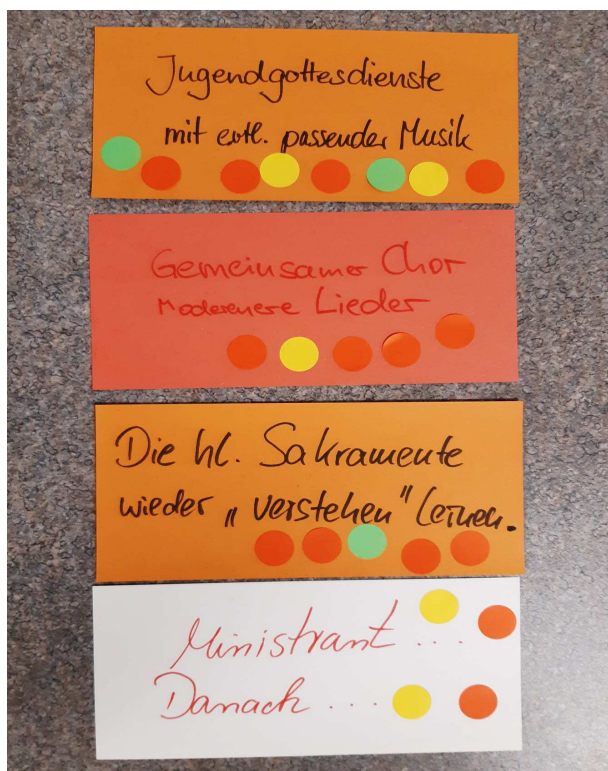 Jugendgottesdienste
mit evtl. passender Musik
Gemeinsamer Chor
Moderenere Lieder
Die hl. Sakramente
wieder „verstehen" lernen.
Ministrant ...
Danach ...